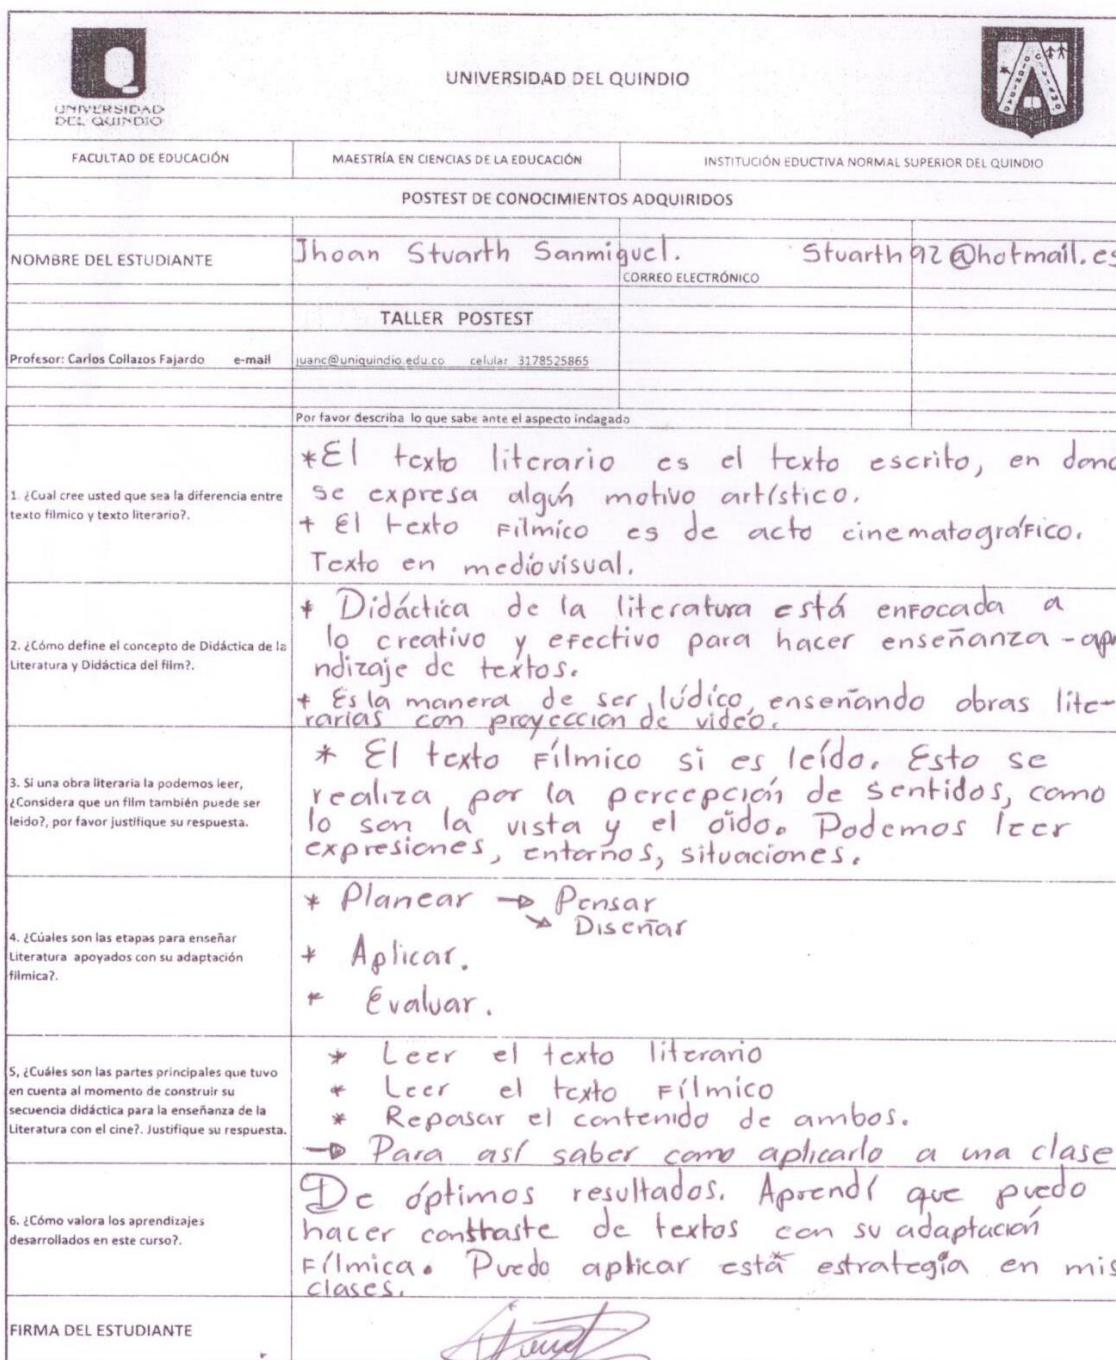 UNIVERSIDAD DEL QUINDIO
UNIVERSIDAD
DEL QUINDIO
FACULTAD DE EDUCACIÓN
MAESTRÍA EN CIENCIAS DE LA EDUCACIÓN
INSTITUCIÓN EDUCTIVA NORMAL SUPERIOR DEL QUINDIO
POSTEST DE CONOCIMIENTOS ADQUIRIDOS
NOMBRE DEL ESTUDIANTE
Jhoan Stuarth Sanmiguel.
CORREO ELECTRÓNICO
Stuarth92@hotmail.es
TALLER POSTEST
Profesor: Carlos Collazos Fajardo e-mail
juanc@uniquindio.edu.co celular 3178525865
Por favor describa lo que sabe ante el aspecto indagado
1. ¿Cual cree usted que sea la diferencia entre
texto fílmico y texto literario?.
*El texto literario es el texto escrito, en dond
se expresa algún motivo artístico.
+ El texto Fílmico es de acto cinematográfico.
Texto en mediovisual.
2. ¿Cómo define el concepto de Didáctica de la
Literatura y Didáctica del film?.
+ Didáctica de la literatura está enfocada a
lo creativo y efectivo para hacer enseñanza-apr
ndizaje de textos.
+ Es la manera de ser lúdico, enseñando obras lite-
rarias con proyección de video.
3. Si una obra literaria la podemos leer,
¿Considera que un film también puede ser
leido?, por favor justifique su respuesta.
* El texto Fílmico si es leído. Esto se
realiza por la percepción de sentidos, como
lo son la vista y el oído. Podemos leer
expresiones, entornos, situaciones.
4. ¿Cúales son las etapas para enseñar
Literatura apoyados con su adaptación
fílmica?.
* Planear → Pensar
↘ Diseñar
+ Aplicar.
* Evaluar.
5, ¿Cuáles son las partes principales que tuvo
en cuenta al momento de construir su
secuencia didáctica para la enseñanza de la
Literatura con el cine?. Justifique su respuesta.
* Leer el texto literario
* Leer el texto Fílmico
* Repasar el contenido de ambos.
→ Para así saber como aplicarlo a una clase
6. ¿Cómo valora los aprendizajes
desarrollados en este curso?.
De óptimos resultados. Aprendí que puedo
hacer contraste de textos con su adaptación
Fílmica. Puedo aplicar está estrategia en mis
clases.
FIRMA DEL ESTUDIANTE